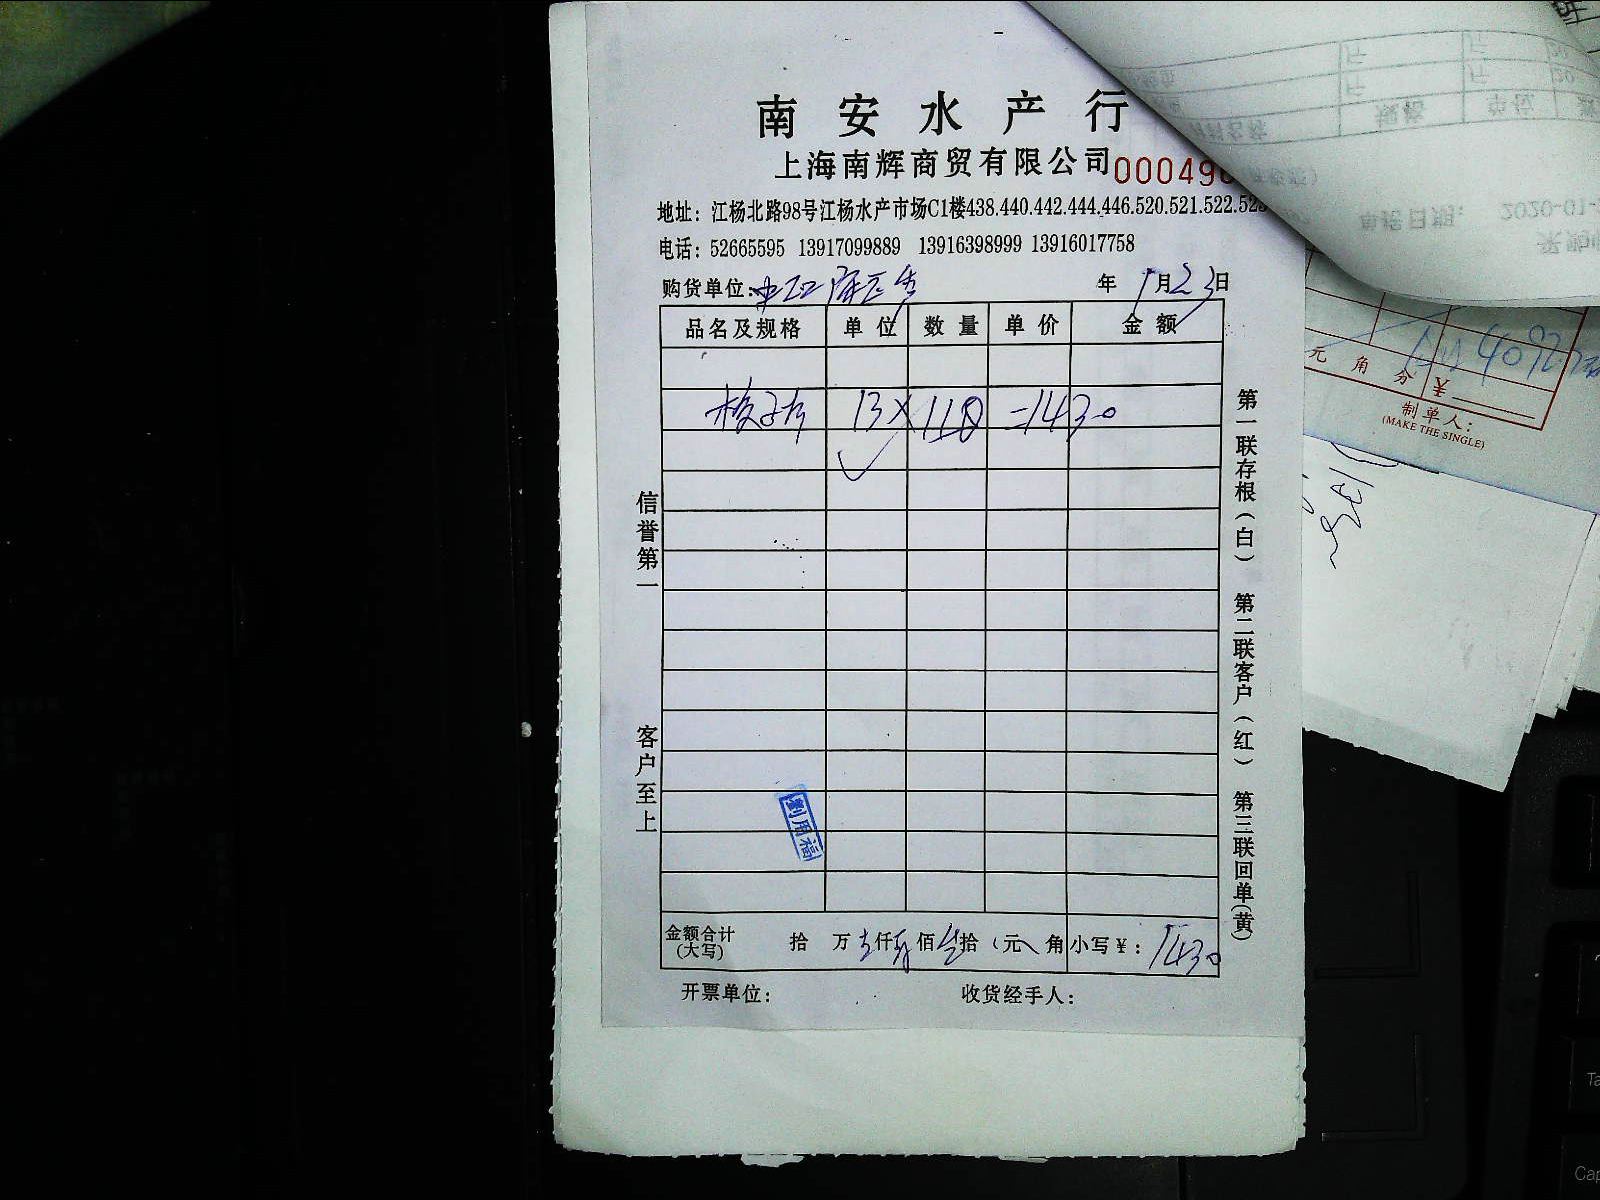 南安水产行
上海南辉商贸有限公司 00049
地址：江杨北路98号江杨水产市场C1楼438.440.442.444.446.520.521.522.523
电话：52665595 13917099889 13916398999 13916017758
购货单位：
年 1月23日
品名及规格 单位 数量 单价 金额
13×110=1430
信誉第一
客户至上
第一联存根（白） 第二联客户（红） 第三联回单（黄）
金额合计（大写） 拾 万 仟 佰 拾 元 角 小写￥：1430
开票单位： 收货经手人：
元 角 分 ￥
制单人：
(MAKE THE SINGLE)
规格 单位
单据日期： 2020-01-